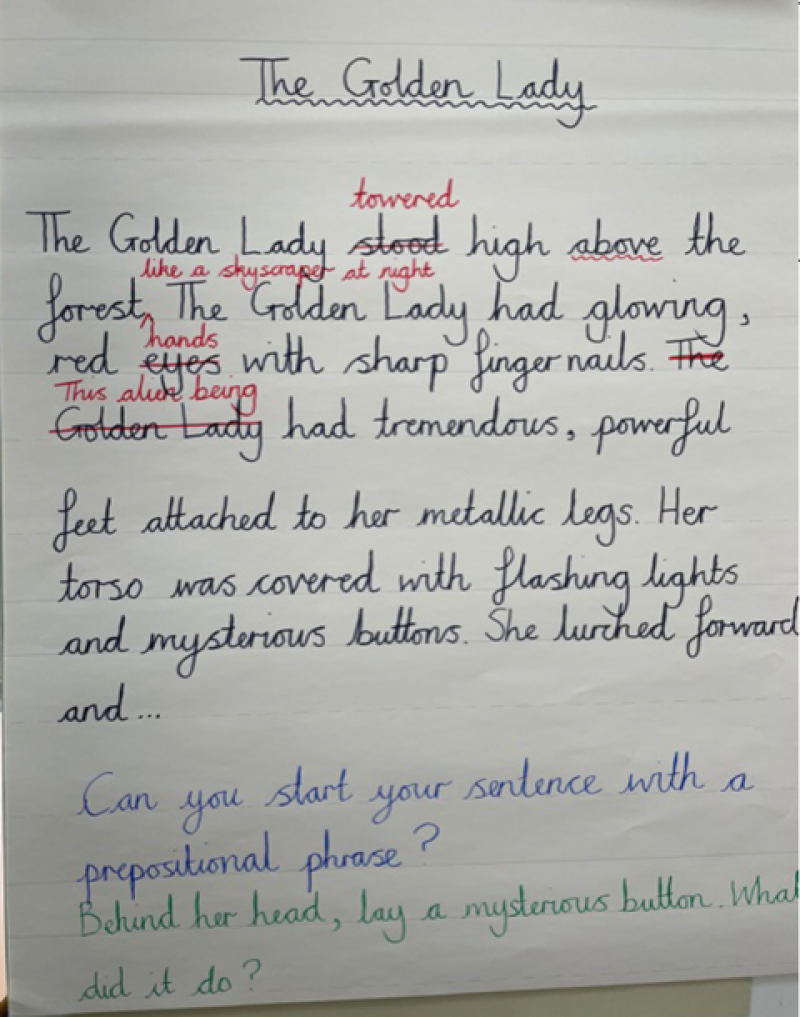 The Golden Lady
towered
The Golden Lady stood high above the
like a skyscraper at night
forest. The Golden Lady had glowing,
hands
red eyes with sharp finger nails. The
This alien being
Golden Lady had tremendous, powerful
feet attached to her metallic legs. Her
torso was covered with flashing lights
and mysterious buttons. She lurched forward
and...
Can you start your sentence with a
prepositional phrase?
Behind her head, lay a mysterious button. What
did it do?